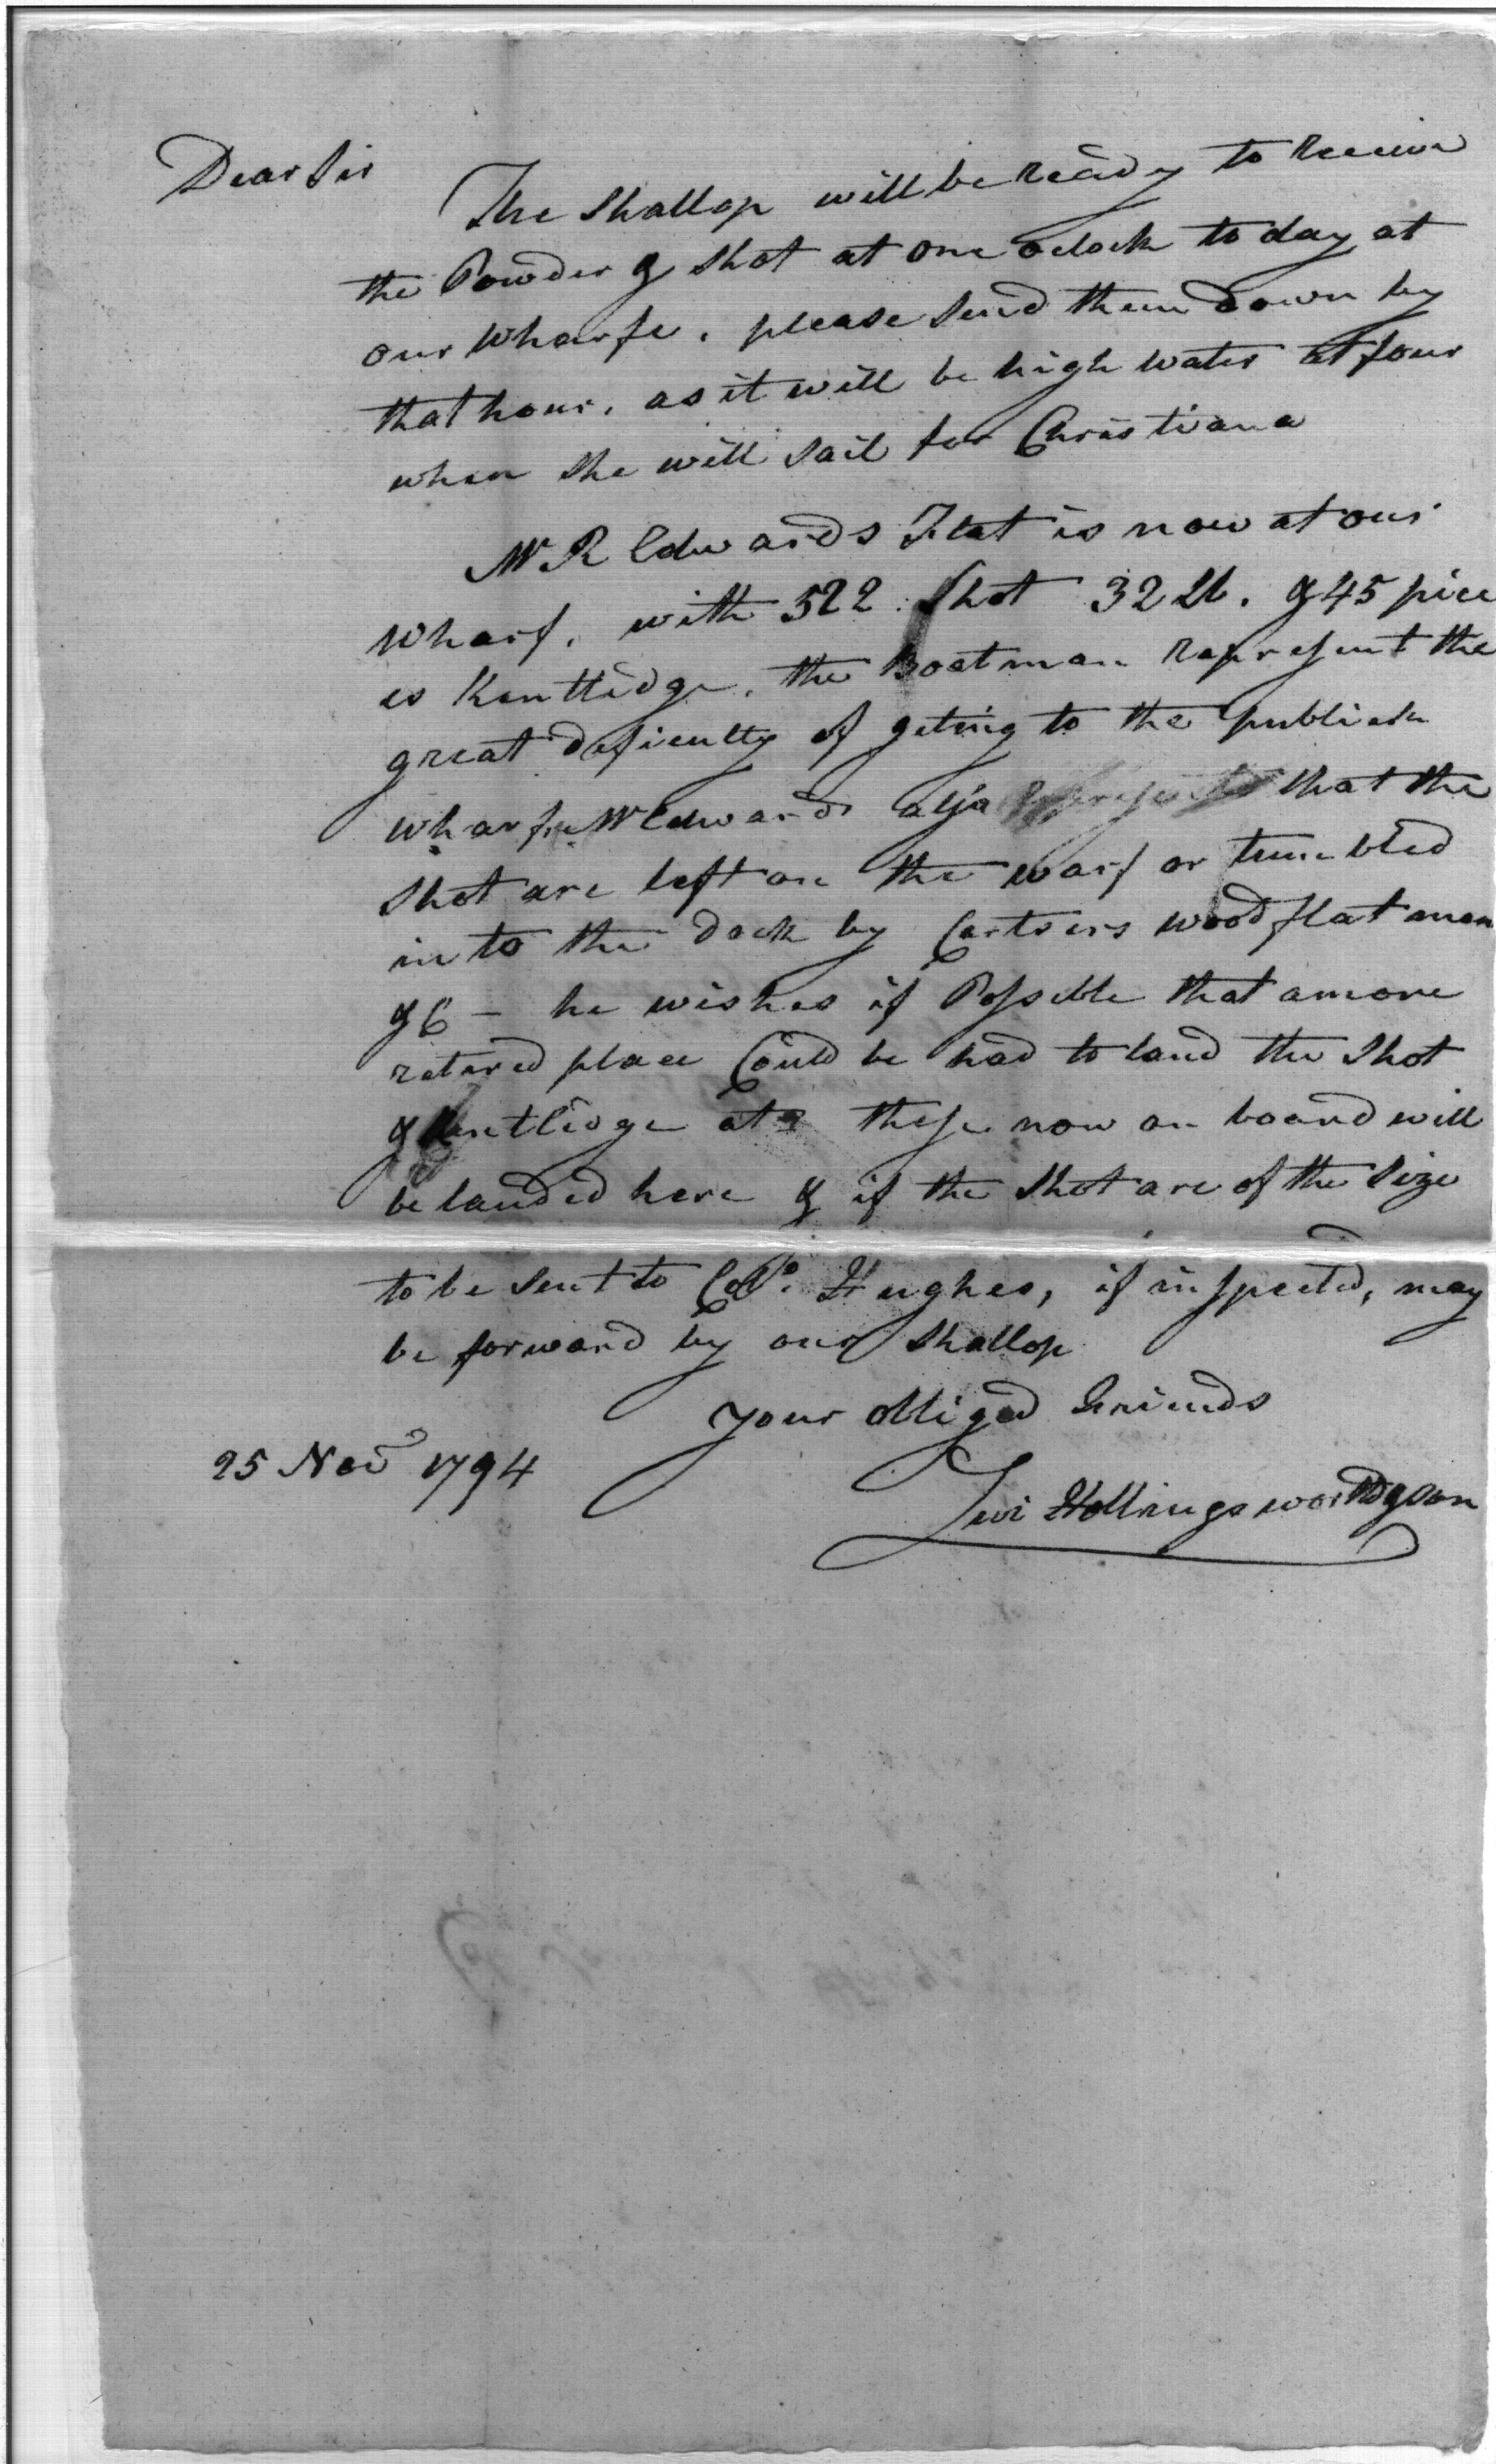 Dear Sir
The Shallop will be ready to receive
the Powder & Shot at one oclock to day at
our wharfe, please Send them down by
that hour, as it will be high water at four
when She will Sail for Christiana
Mr Edwards Flat is now at our
wharf, with 522 Shot 32 lb. & 45 piec
es Kentledge, the Boatman represent the
great dificulty of geting to the publick
wharfe Mr Edwards also that the
Shot are left on the warf or tumbled
into the dock by Carters wood flat men
&C – he wishes if Possible that a more
retired place Could be had to land the Shot
& Kentlidge at these now on board will
be landed here & if the Shot are of the Size
to be Sent to Colo. Hughes, if inspected, may
be forward by our Shallop
your obliged Friends
25 Nov 1794
Levi Hollingsworth & Son